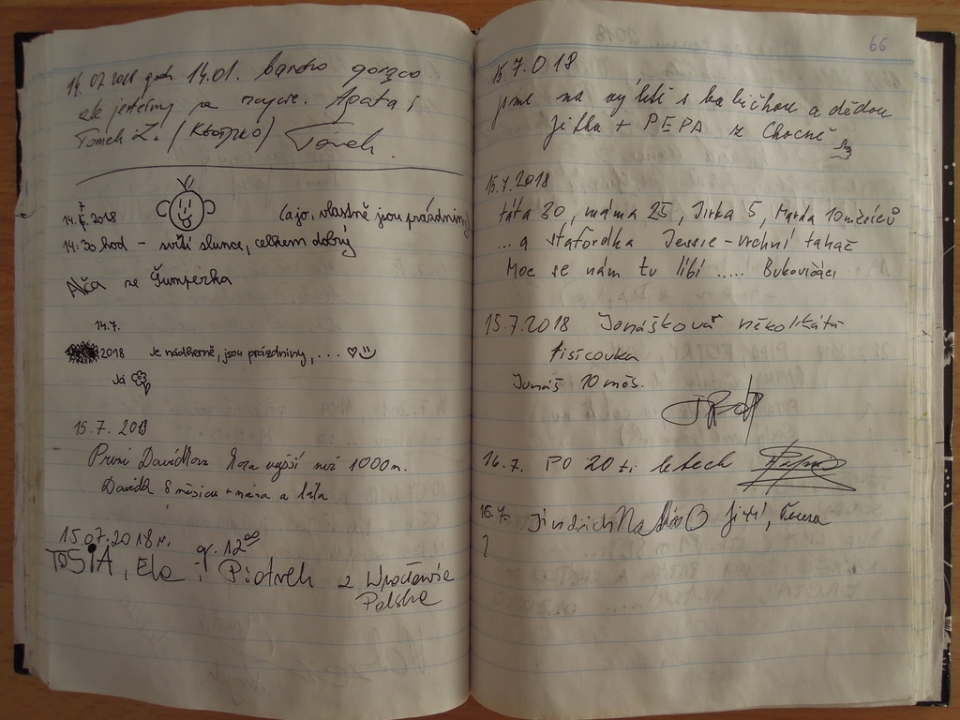 14.07 2018 godz. 14.01. bardzo gorąco
ale jesteśmy na szczycie. Agata i
Tomek Z. (Kłodzko) Tomek.
14.7.2018 (a jo, vlastně jsou prázdniny)
14:30 hod - svítí slunce, celkem dobrý
Alča ze Šumperka
14.7.
2018 Je nádherně, jsou prázdniny, ... ♡☺
Já
15.7.2018
První Davídkova hora vyšší než 1000m.
Davídek 8 měsíců + máma a táta
15.07.2018r. g. 12⁰⁰
TOSIA, Ela i Piotrek z Wrocławia
Polska
66
15.7.018
jsme na výletě s babičkou a dědou
Jitka + PEPA z Chocně
15.7.2018
táta 30, máma 25, Jirka 5, 10 měsíců
... a stafordka Jessie - vrchní tahač
Moc se nám tu líbí ..... Bukovičáci
15.7.2018 Jonáškova několikátá
tisícovka
Jonáš 10 měs.
16.7. PO 20 ti letech
15.7. Jindřich Jiří,